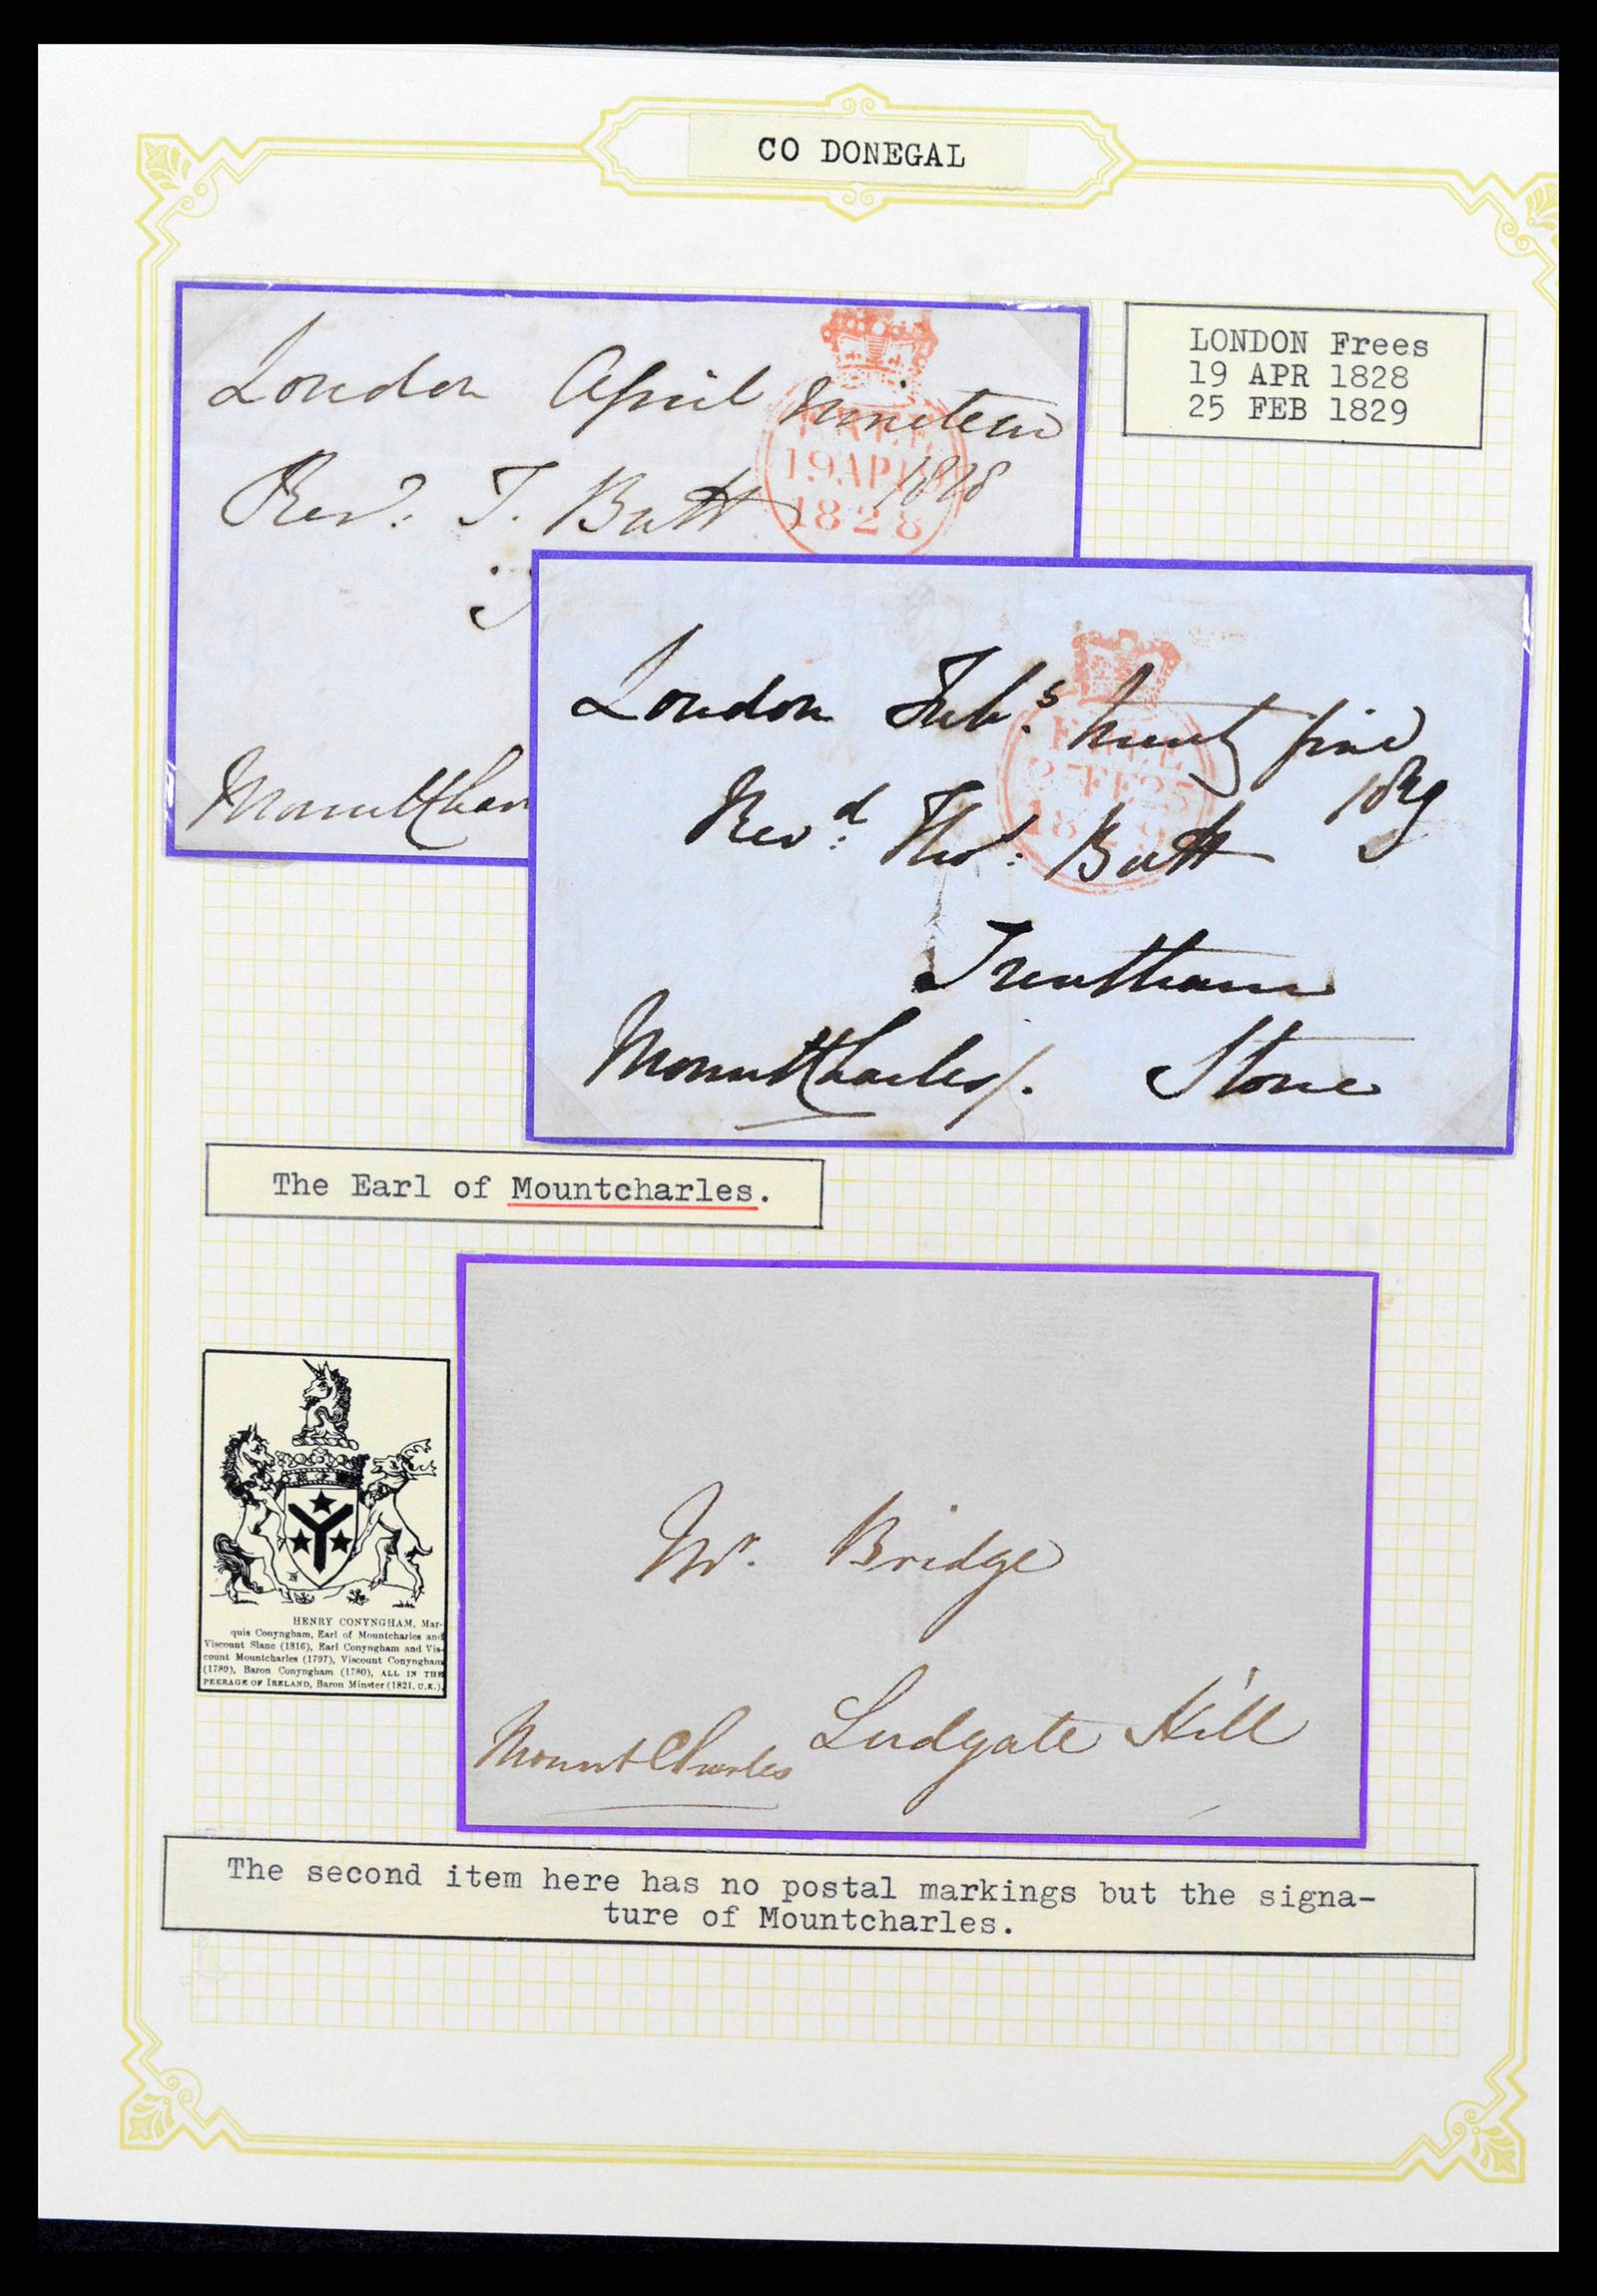 CO DONEGAL
London April Nineteen
1828
Revd. T. Butt
FREE
19 AP 19
1828
MountChar
LONDON Frees
19 APR 1828
25 FEB 1829
London Feby. twenty five
1829
Revd. Thos. Butt
FREE
25 FE 25
1829
Trentham
Stone
MountCharles
The Earl of Mountcharles.
HENRY CONYNGHAM, Mar-
quis Conyngham, Earl of Mountcharles and
Viscount Slane (1816), Earl Conyngham and Vis-
count Mountcharles (1797), Viscount Conyngham
(1789), Baron Conyngham (1780), ALL IN THE
PEERAGE OF IRELAND, Baron Minster (1821, U.K.).
Mr. Bridge
Ludgate Hill
MountCharles
The second item here has no postal markings but the signa-
ture of Mountcharles.